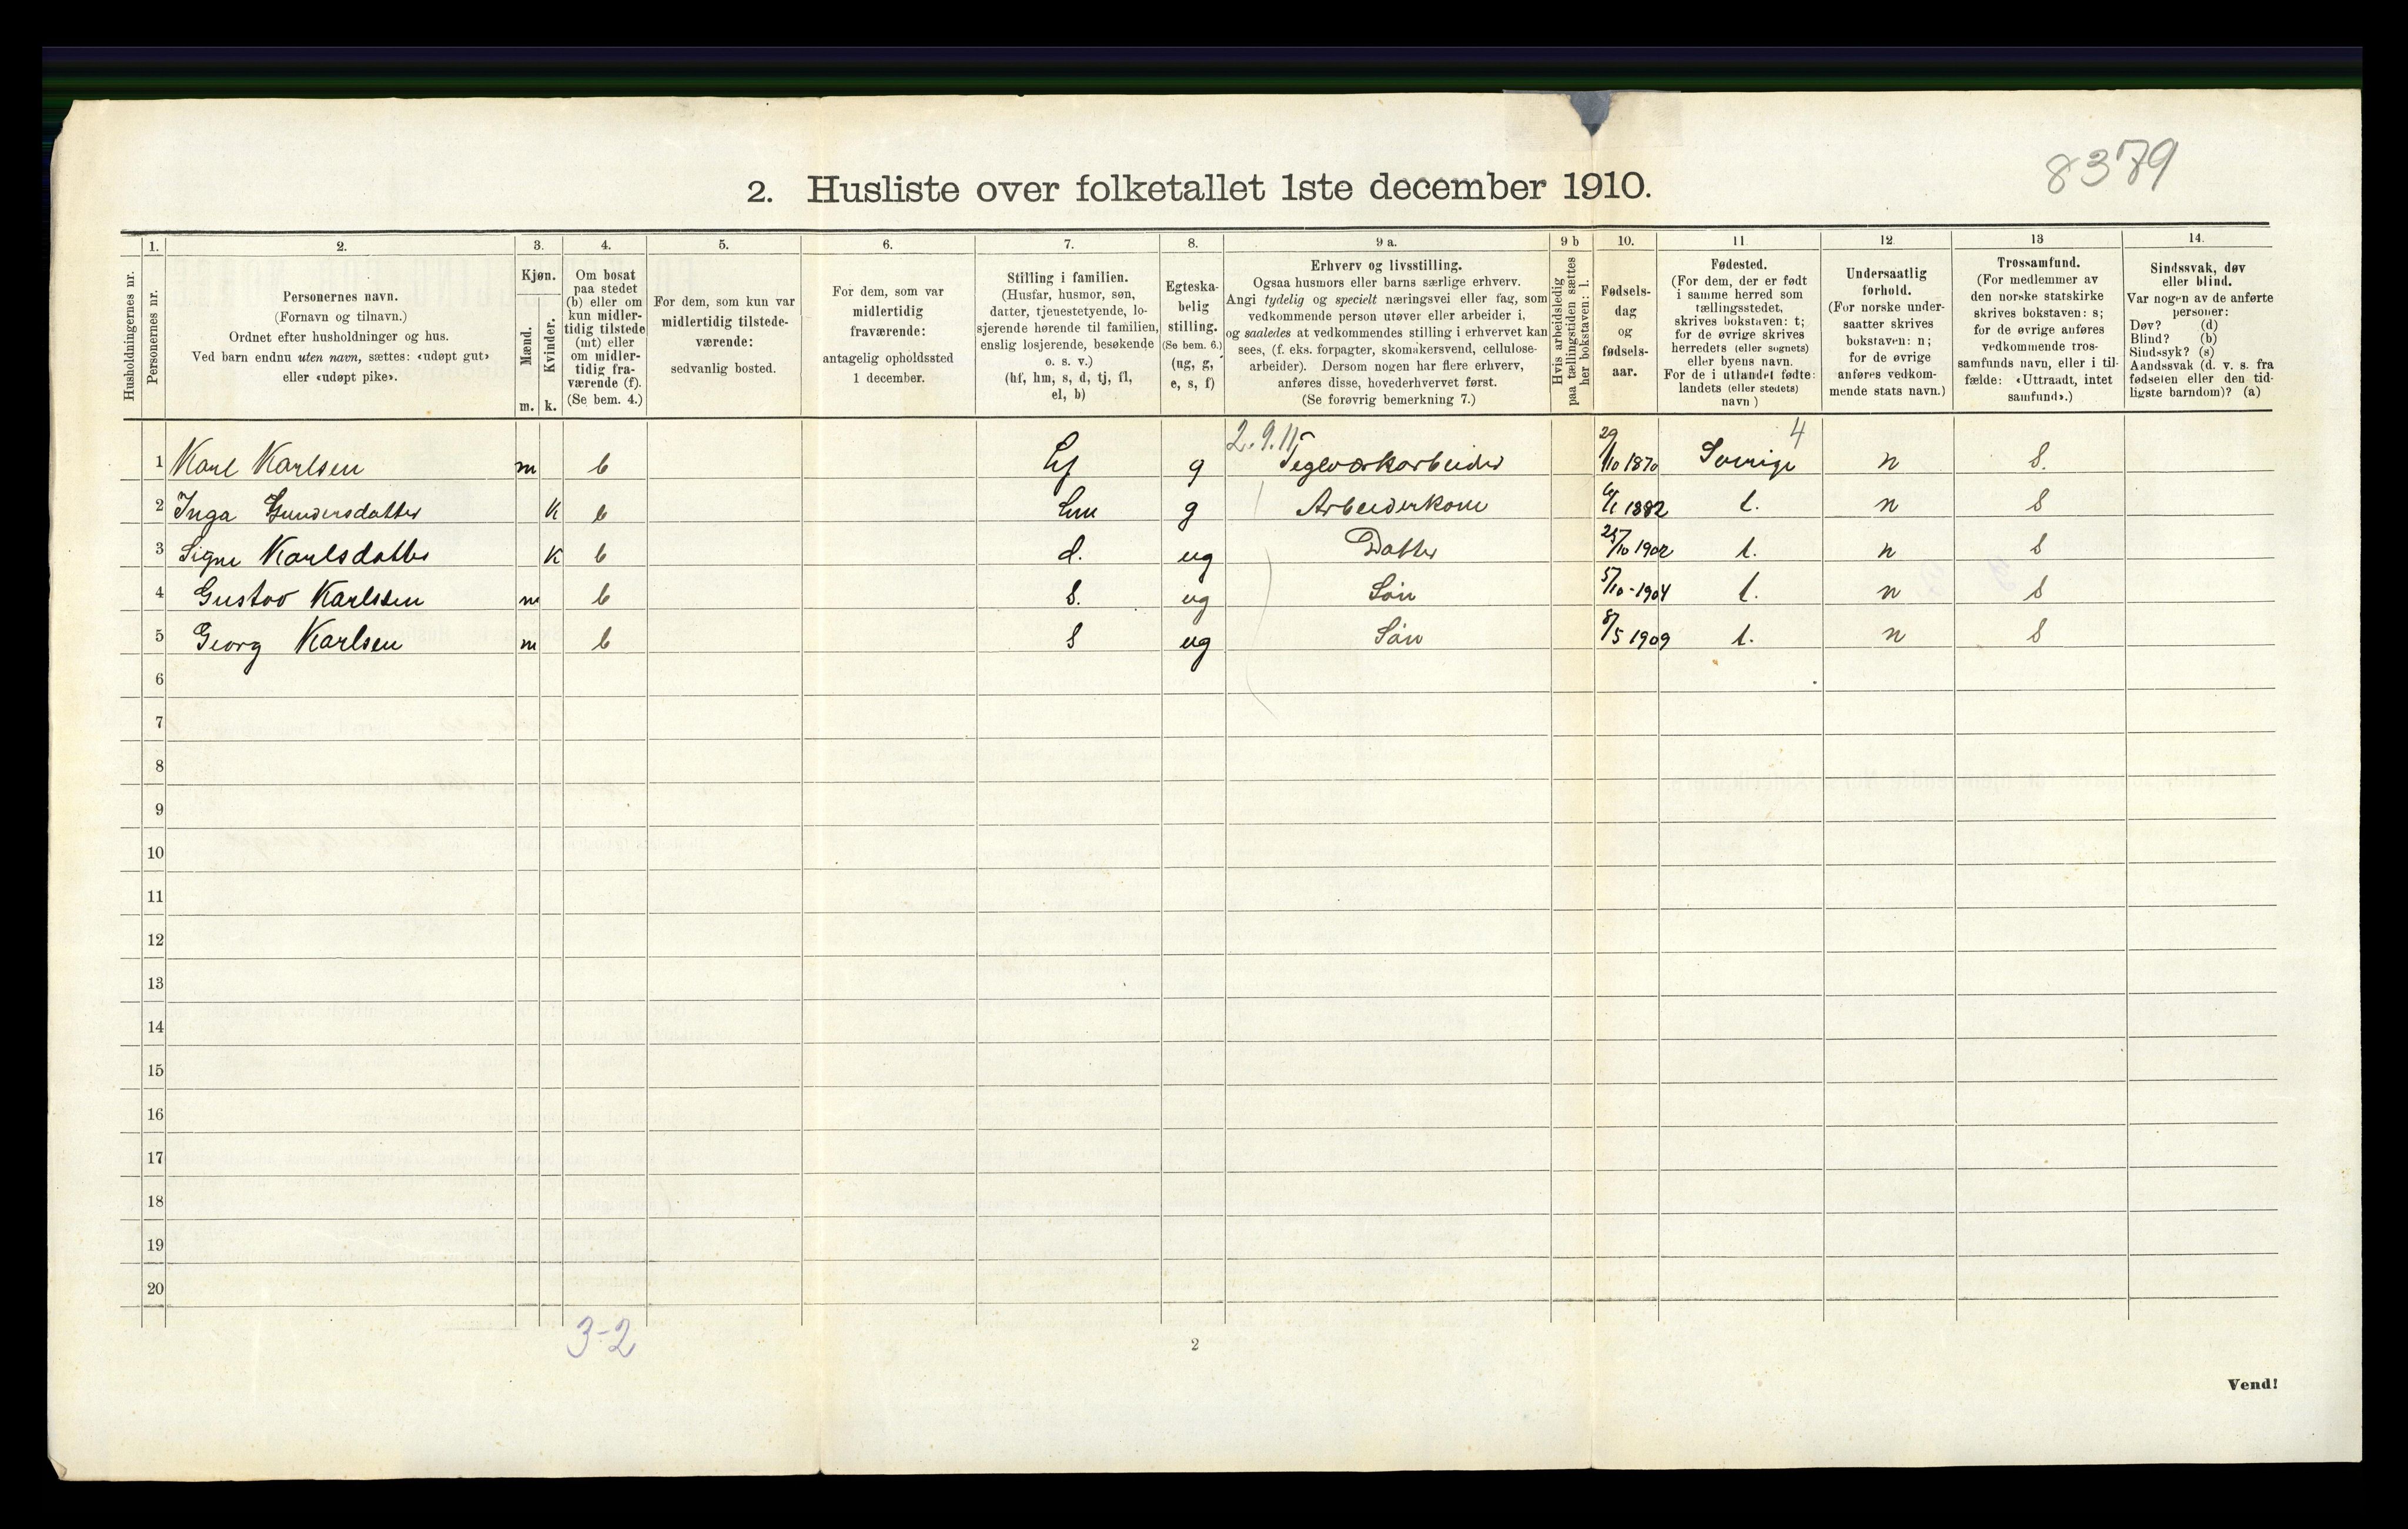 8379
2. Husliste over folketallet 1ste december 1910.
Husholdningernes nr.
1.
Personernes nr.
2.
Personernes navn.
(Fornavn og tilnavn.)
Ordnet efter husholdninger og hus.
Ved barn endnu uten navn, sættes: «udøpt gut»
eller «udøpt pike».
3.
Kjøn.
Mænd.
Kvinder.
m.
k.
4.
Om bosat
paa stedet
(b) eller om
kun midler-
tidig tilstede
(mt) eller
om midler-
tidig fra-
værende (f).
(Se bem. 4.)
5.
For dem, som kun var
midlertidig tilstede-
værende:
sedvanlig bosted.
6.
For dem, som var
midlertidig
fraværende:
antagelig opholdssted
1 december.
7.
Stilling i familien.
(Husfar, husmor, søn,
datter, tjenestetyende, lo-
sjerende hørende til familien,
enslig losjerende, besøkende
o. s. v.)
(hf, hm, s, d, tj, fl,
el, b)
8.
Egteska-
belig
stilling.
(Se bem. 6.)
(ug, g,
e, s, f)
9 a.
Erhverv og livsstilling.
Ogsaa husmors eller barns særlige erhverv.
Angi tydelig og specielt næringsvei eller fag, som
vedkommende person utøver eller arbeider i,
og saaledes at vedkommendes stilling i erhvervet kan
sees, (f. eks. forpagter, skomakersvend, cellulose-
arbeider). Dersom nogen har flere erhverv,
anføres disse, hovederhvervet først.
(Se forøvrig bemerkning 7.)
9 b
Hvis arbeidsledig
paa tællingstiden sættes
her bokstaven: l.
10.
Fødsels-
dag
og
fødsels-
aar.
11
Fødested.
(For dem, der er født
i samme herred som
tællingsstedet,
skrives bokstaven: t;
for de øvrige skrives
herredets (eller sognets)
eller byens navn.
For de i utlandet fødte:
landets (eller stedets)
navn )
12
Undersaatlig
forhold.
(For norske under-
saatter skrives
bokstaven: n;
for de øvrige
anføres vedkom-
mende stats navn.)
13
Trossamfund.
(For medlemmer av
den norske statskirke
skrives bokstaven: s;
for de øvrige anføres
vedkommende tros-
samfunds navn, eller i til-
fælde: «Uttraadt, intet
samfund».)
14.
Sindssvak, døv
eller blind.
Var nogen av de anførte
personer:
Døv? (d)
Blind? (b)
Sindssyk? (s)
Aandssvak (d. v. s. fra
fødselen eller den tid-
ligste barndom)? (a)
2.9.11 4
1 Karl Karlsen m b hf g Teglværkarbeider 29/10 1870 Sverige n S.
2 Inga Gundersdatter k b hm g Arbeiderkone 1882 t. n S
3 Signe Karlsdatter k b d. ug Datter 25/10 1902 t. n S
4 Gustav Karlsen m b S. ug Sön 5/10-1904 t. n S
5 Georg Karlsen m b S ug Sön 8/5 1909 t. n S
6
7
8
9
10
11
12
13
14
15
16
17
18
19
20
3-2
2
Vend!